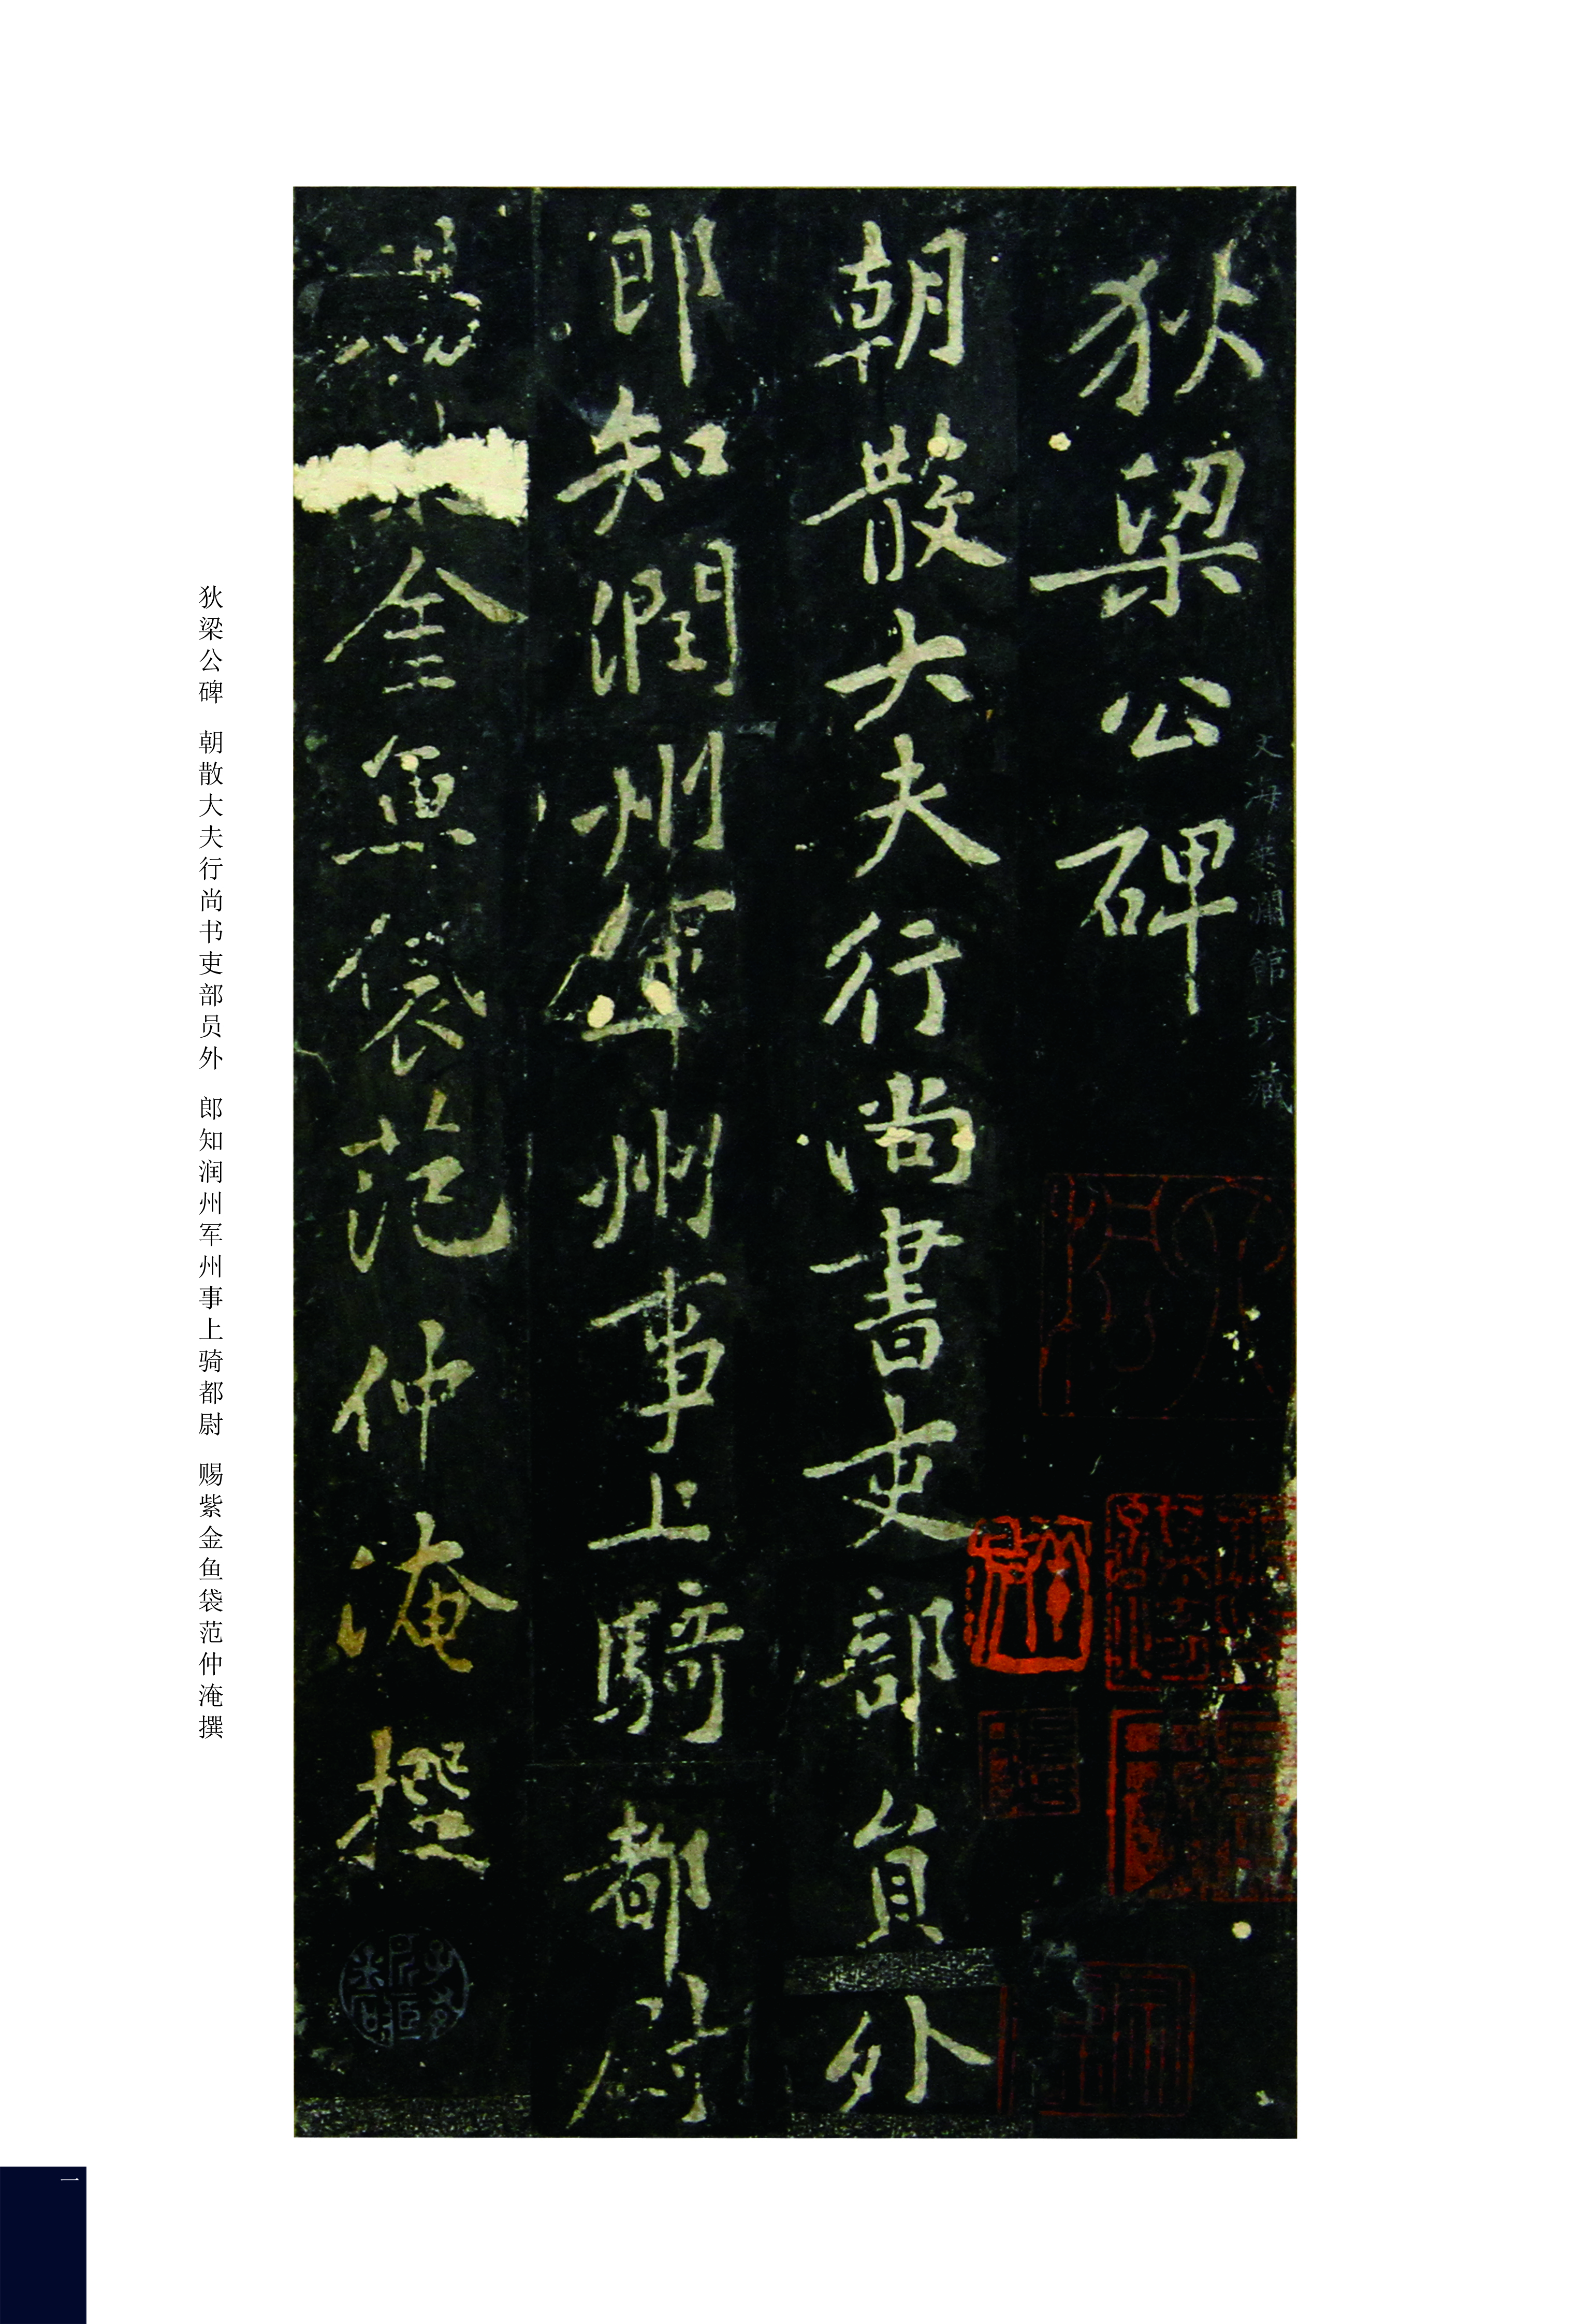 狄梁公碑
朝散大夫行尚書吏部員外
郎知潤州軍州事上騎都尉
賜金魚袋范仲淹撰
狄梁公碑 朝散大夫行尚书吏部员外 郎知润州军州事上骑都尉 赐紫金鱼袋范仲淹撰
一